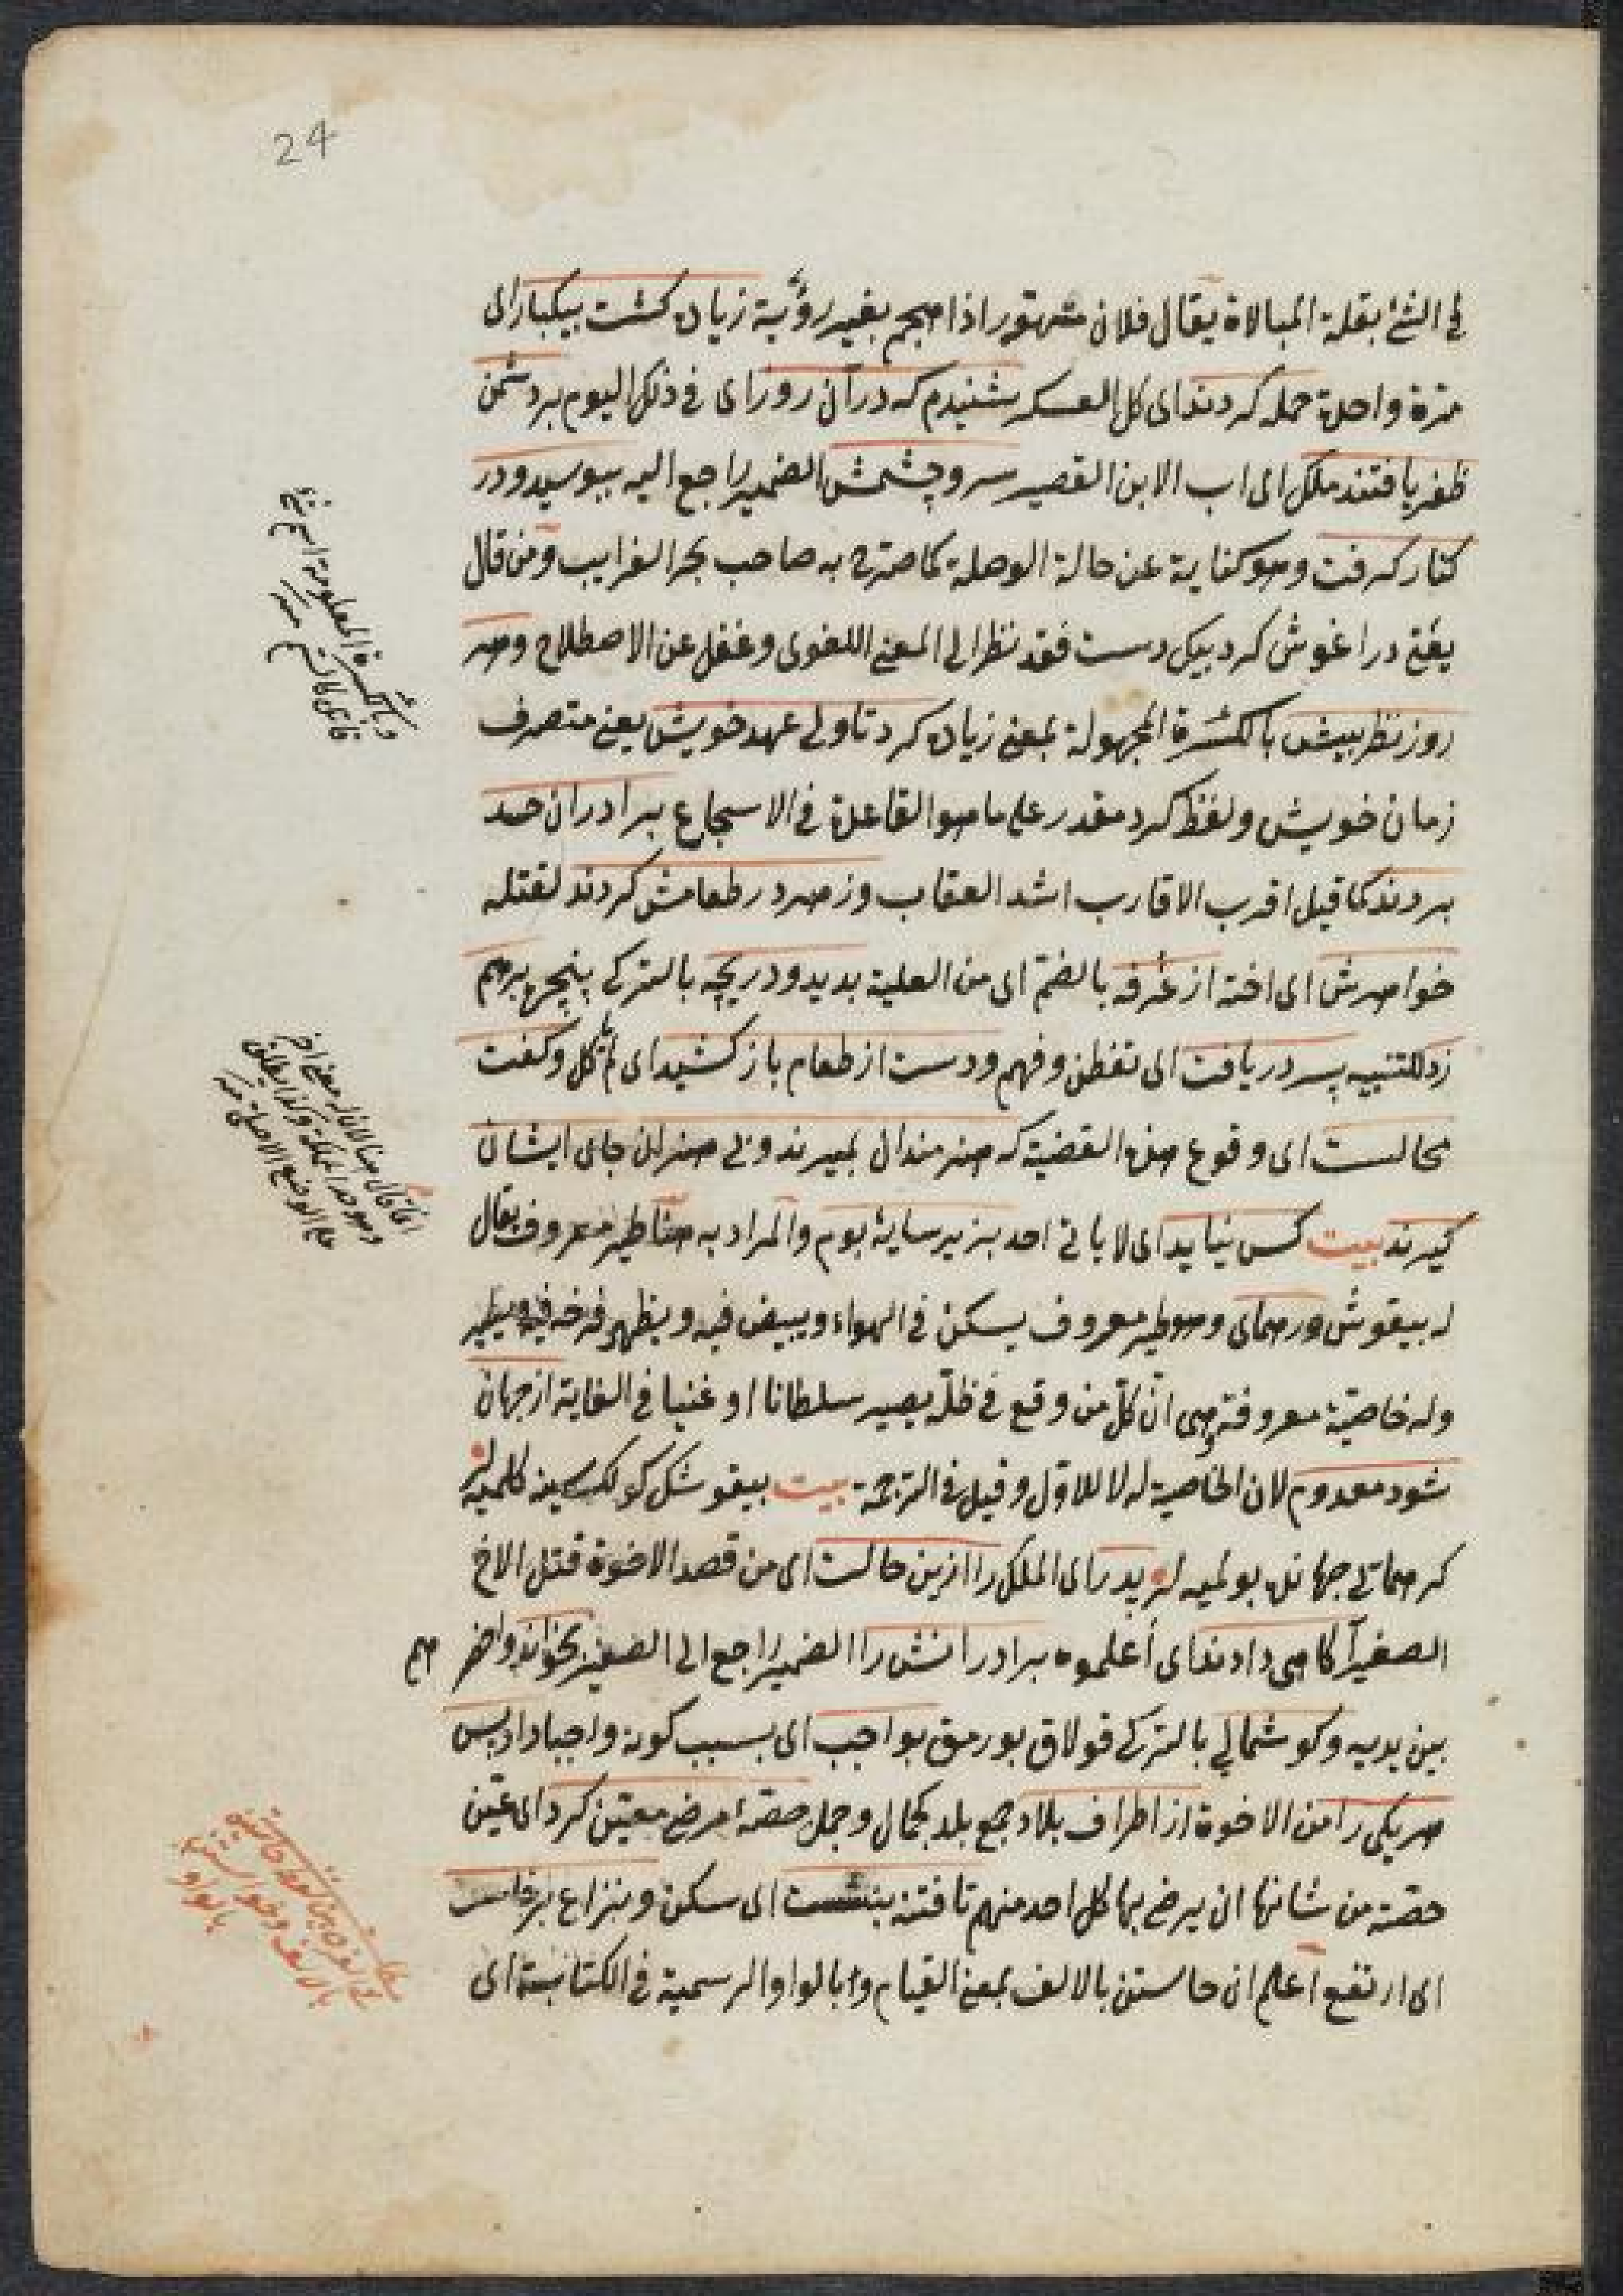 24
في الشئ بقلة المبالاة يقال فلان متهور اذا هجم بغير روٴية زياده كشت بيكبار اى
مرة واحدة حمله كردند اى كل العسكر شنيدم كه در آن روز اى فى ذلك اليوم بر دشمن
ظفر يافتند ملك اى اب الابن القصير سر و چشمش الضمير راجع اليه ببوسيد و در
كنار كرفت وهو كناية عن حالة الوصلة كما صرح به صاحب بحر الغرايب ومن قال
يعنى در اغوش كرد بيكى دست فقد نظر الى المعنى اللغوى وغفل عن الاصطلاح وهر
روز نظر بيش بالكسرة المجهولة بمعنى زياده كرد تا ولى عهد خويش يعنى متصرف
زمان خويش ولفظ كرد مقدر على ما هو القاعدة فى الاسجاع برادران حسد
بردند كما قيل اقرب الاقارب اشد العقاب وزهر در طعامش كردند لقتله
خواهرش اى اخته از غرفه بالضم اى من العلية بديد ودريچه بالتركى پنجره برهم
زد للتنبيه پسر دريافت اى تفطن وفهم ودست از طعام باز كشيد اى لم ياكل وكفت
محالست اى وقوع هذه القضية كه هنرمندان بميرند وبى هنران جاى ايشان
كيرند بيت كس نيايد اى لا ياتى احد بزير سايۀ بوم والمراد به هنا طير معروف يقال
له بيقوش ور هماى وهو طير معروف يسكن فى الهواء ويبيض فيه ويظهر فرخه فيه ويطير
وله خاصية معروفة وهى ان كل من وقع فى ظله يصير سلطانا او غنيا فى الغاية از جهان
شود معدوم لان الخاصية له لا للاول وقيل فى الترجمة بيت بيقوشك كولكه سينه كلميه لر
كر هماى جهانده بولميه لر پدر اى الملك را ازين حالت اى من قصد الاخوة قتل الاخ
الصغير آكاهى دادند اى أعلموه برادرانش را الضمير راجع الى الصغير بخواند واحضر هم
بين يديه وكوشمالى بالتركى قولاق بورمق بواجب اى بسبب كونه واجبا داد پس
هر يكى را من الاخوة از اطراف بلاد جمع بلد كجمال وجمل حصه مرضى معين كرد اى عين
حصة من شانها ان يرضى بها كل احد منهم تا فتنه بنشست اى سكن ونزاع برخاست
اى ارتفع اعلم ان خاستن بالالف بمعنى القيام وبالواو الرسمية فى الكتابة اى
وبالكسرة المعلومة اسم